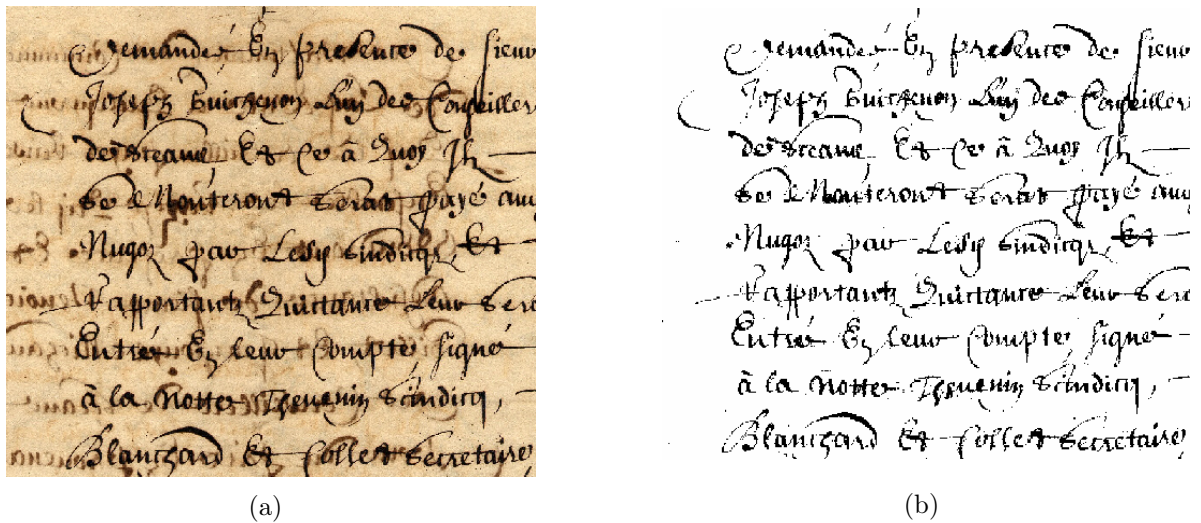 Demandé En presence de sieur
Joseph Guichenon Luy des Conseillers
de Sceame Et Ce à Quoy Ilz
se Monteront Serat payé aux
Nugoz par Lesd Sindicqz, Et
Rapportantz Quittance Leur Sera
Entré En leur Compte, signé
à la Notte Thevenin Scindicq,
Blanchard Et Collet Secretaire,
(a)
Demandé En presence de sieur
Joseph Guichenon Luy des Conseillers
de Sceame Et Ce à Quoy Ilz
se Monteront Serat payé aux
Nugoz par Lesd Sindicqz, Et
Rapportantz Quittance Leur Sera
Entré En leur Compte, signé
à la Notte Thevenin Scindicq,
Blanchard Et Collet Secretaire,
(b)